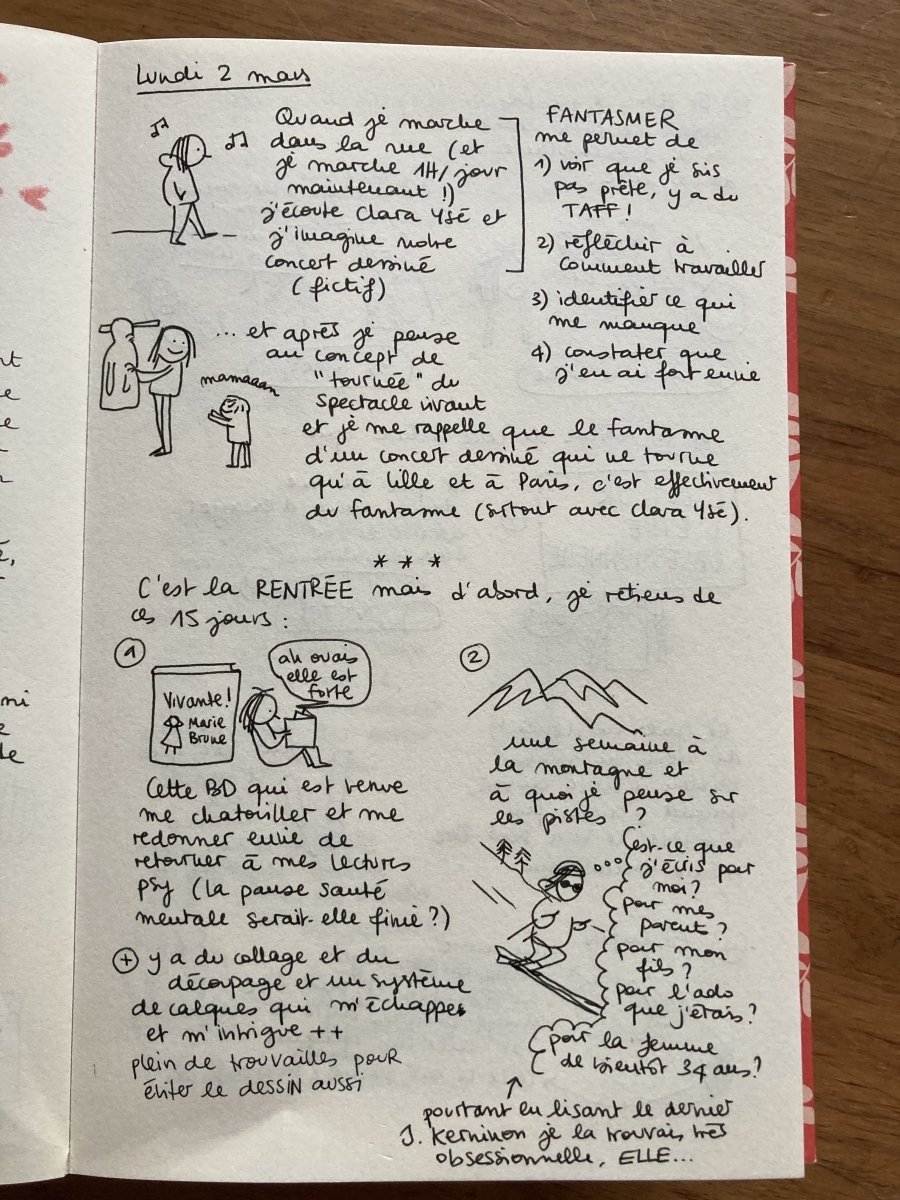 Lundi 2 mars
Quand je marche
dans la rue (et
je marche 1H/jour
maintenant !)
j'écoute Clara Ysé et
j'imagine notre
concert dessiné
(fictif)
FANTASMER
me permet de
1) voir que je suis
pas prête, y a du
TAFF !
2) réfléchir à
comment travailler
3) identifier ce qui
me manque
4) constater que
j'en ai fort envie
... et après je pense
au concept de
"tournée" du
spectacle vivant
et je me rappelle que le fantasme
d'un concert dessiné qui ne tourne
qu'à Lille et à Paris, c'est effectivement
du fantasme (surtout avec Clara Ysé).
mamaaan
***
C'est la RENTRÉE mais d'abord, je retiens de
ces 15 jours :
1
Vivante !
Marie
Brune
ah ouais
elle est
forte
Cette BD qui est venue
me chatouiller et me
redonner envie de
retourner à mes lectures
psy (la pause santé
mentale serait-elle finie ?)
+ y a du collage et du
découpage et un système
de calques qui m'échappe
et m'intrigue ++
plein de trouvailles pour
éviter le dessin aussi
2
une semaine à
la montagne et
à quoi je pense sur
les pistes ?
Est-ce que
j'écris pour
moi ?
pour mes
parents ?
pour mon
fils ?
pour l'ado
que j'étais ?
pour la femme
de bientôt 34 ans ?
pourtant en lisant le dernier
J. Kerninon je la trouvais très
obsessionnelle, ELLE...